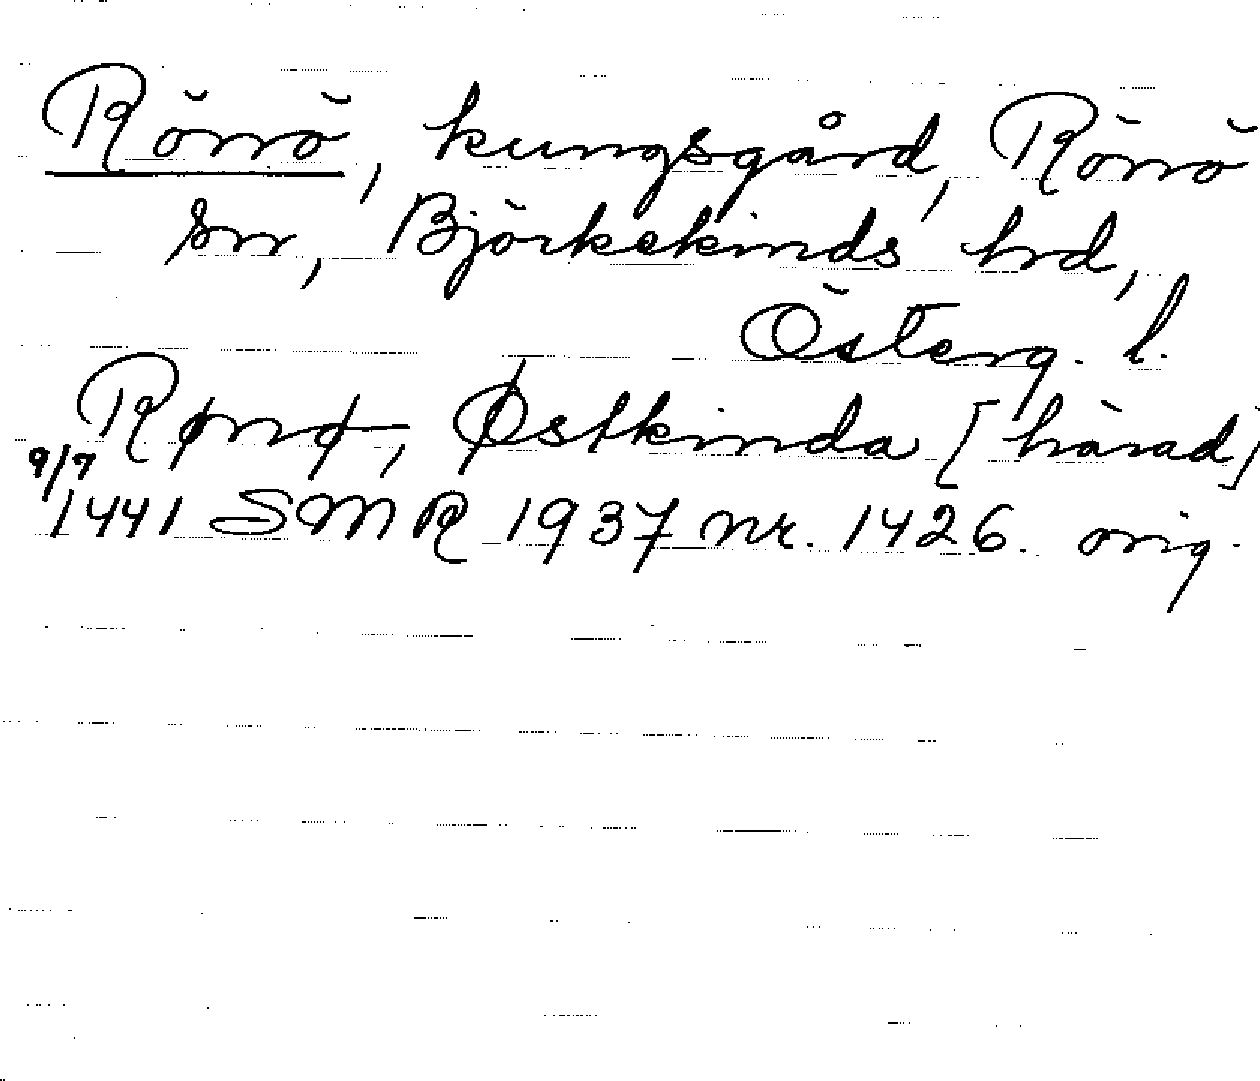 Rönö, kungsgård, Rönö
sn, Björkekinds hrd,
Österg. l.
Rønø, Østkinda [härad]
9/7
1441 SMR 1937 nr. 1426. orig.